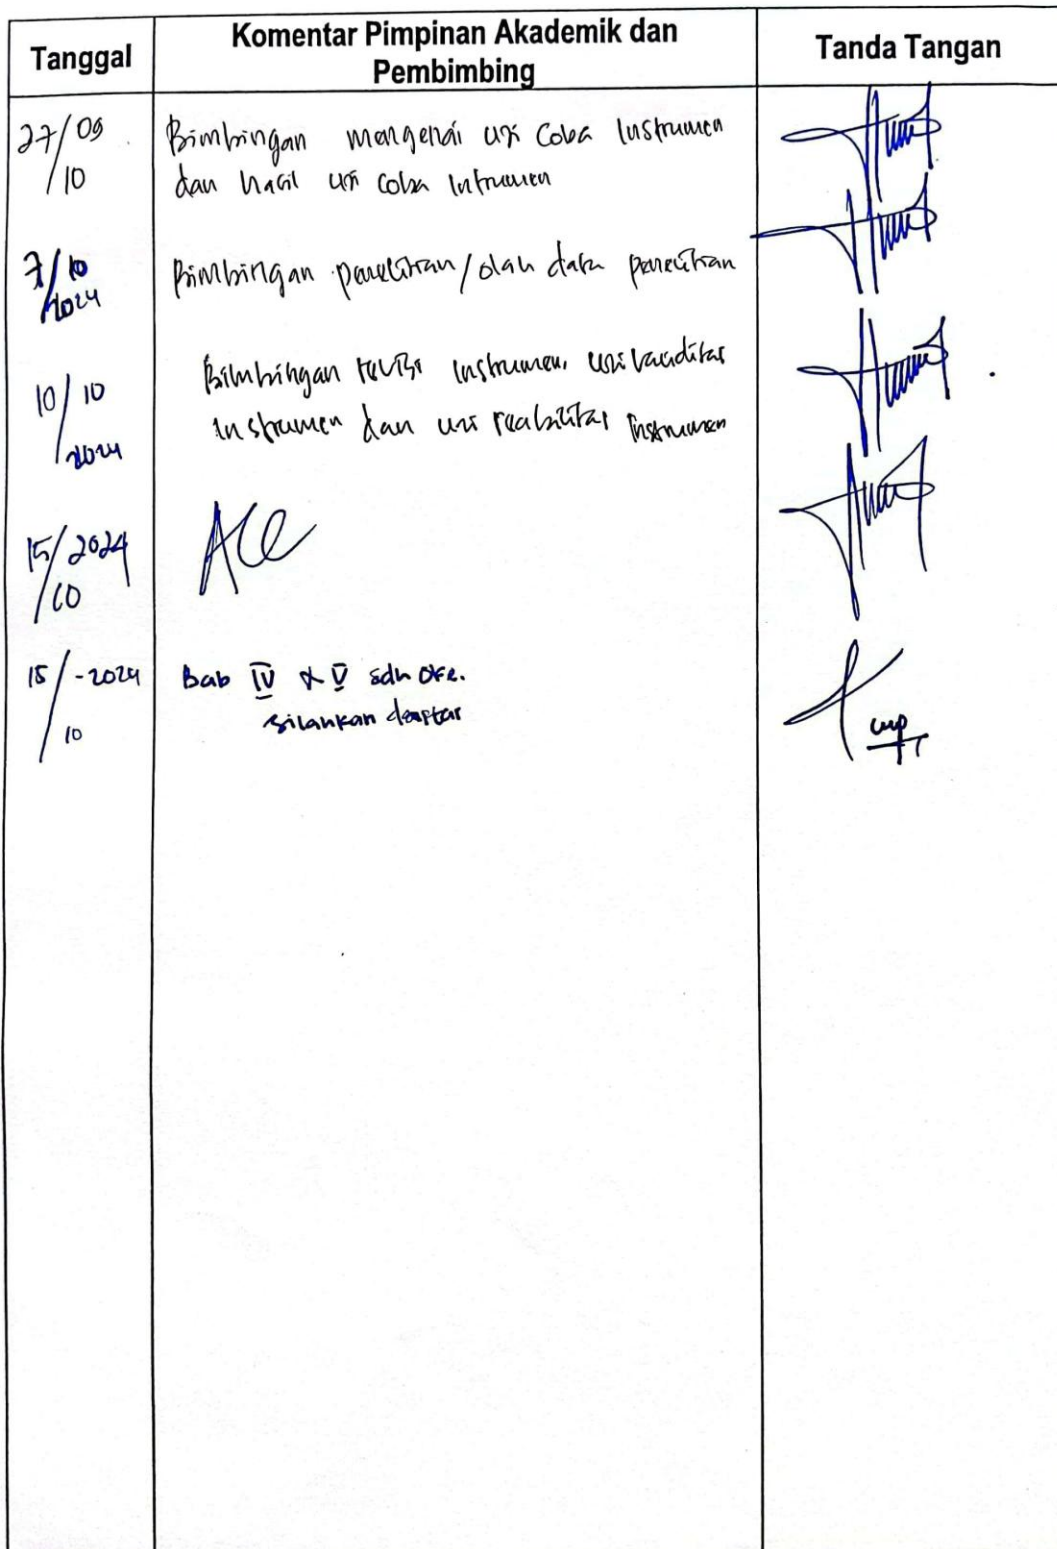 Tanggal
Komentar Pimpinan Akademik dan
Pembimbing
Tanda Tangan
27/09
/10
Bimbingan mengenai uji Coba Instrumen
dan hasil uji Coba Intrumen
7/10
/2024
Bimbingan penelitian/olah data penelitian
10/10
/2024
Bimbingan revisi instrumen, uji validitas
instrumen dan uji reabilitas instrumen
15/2024
/10
ACC
18/-2024
/10
Bab IV & V sdh oke.
silankan daftar